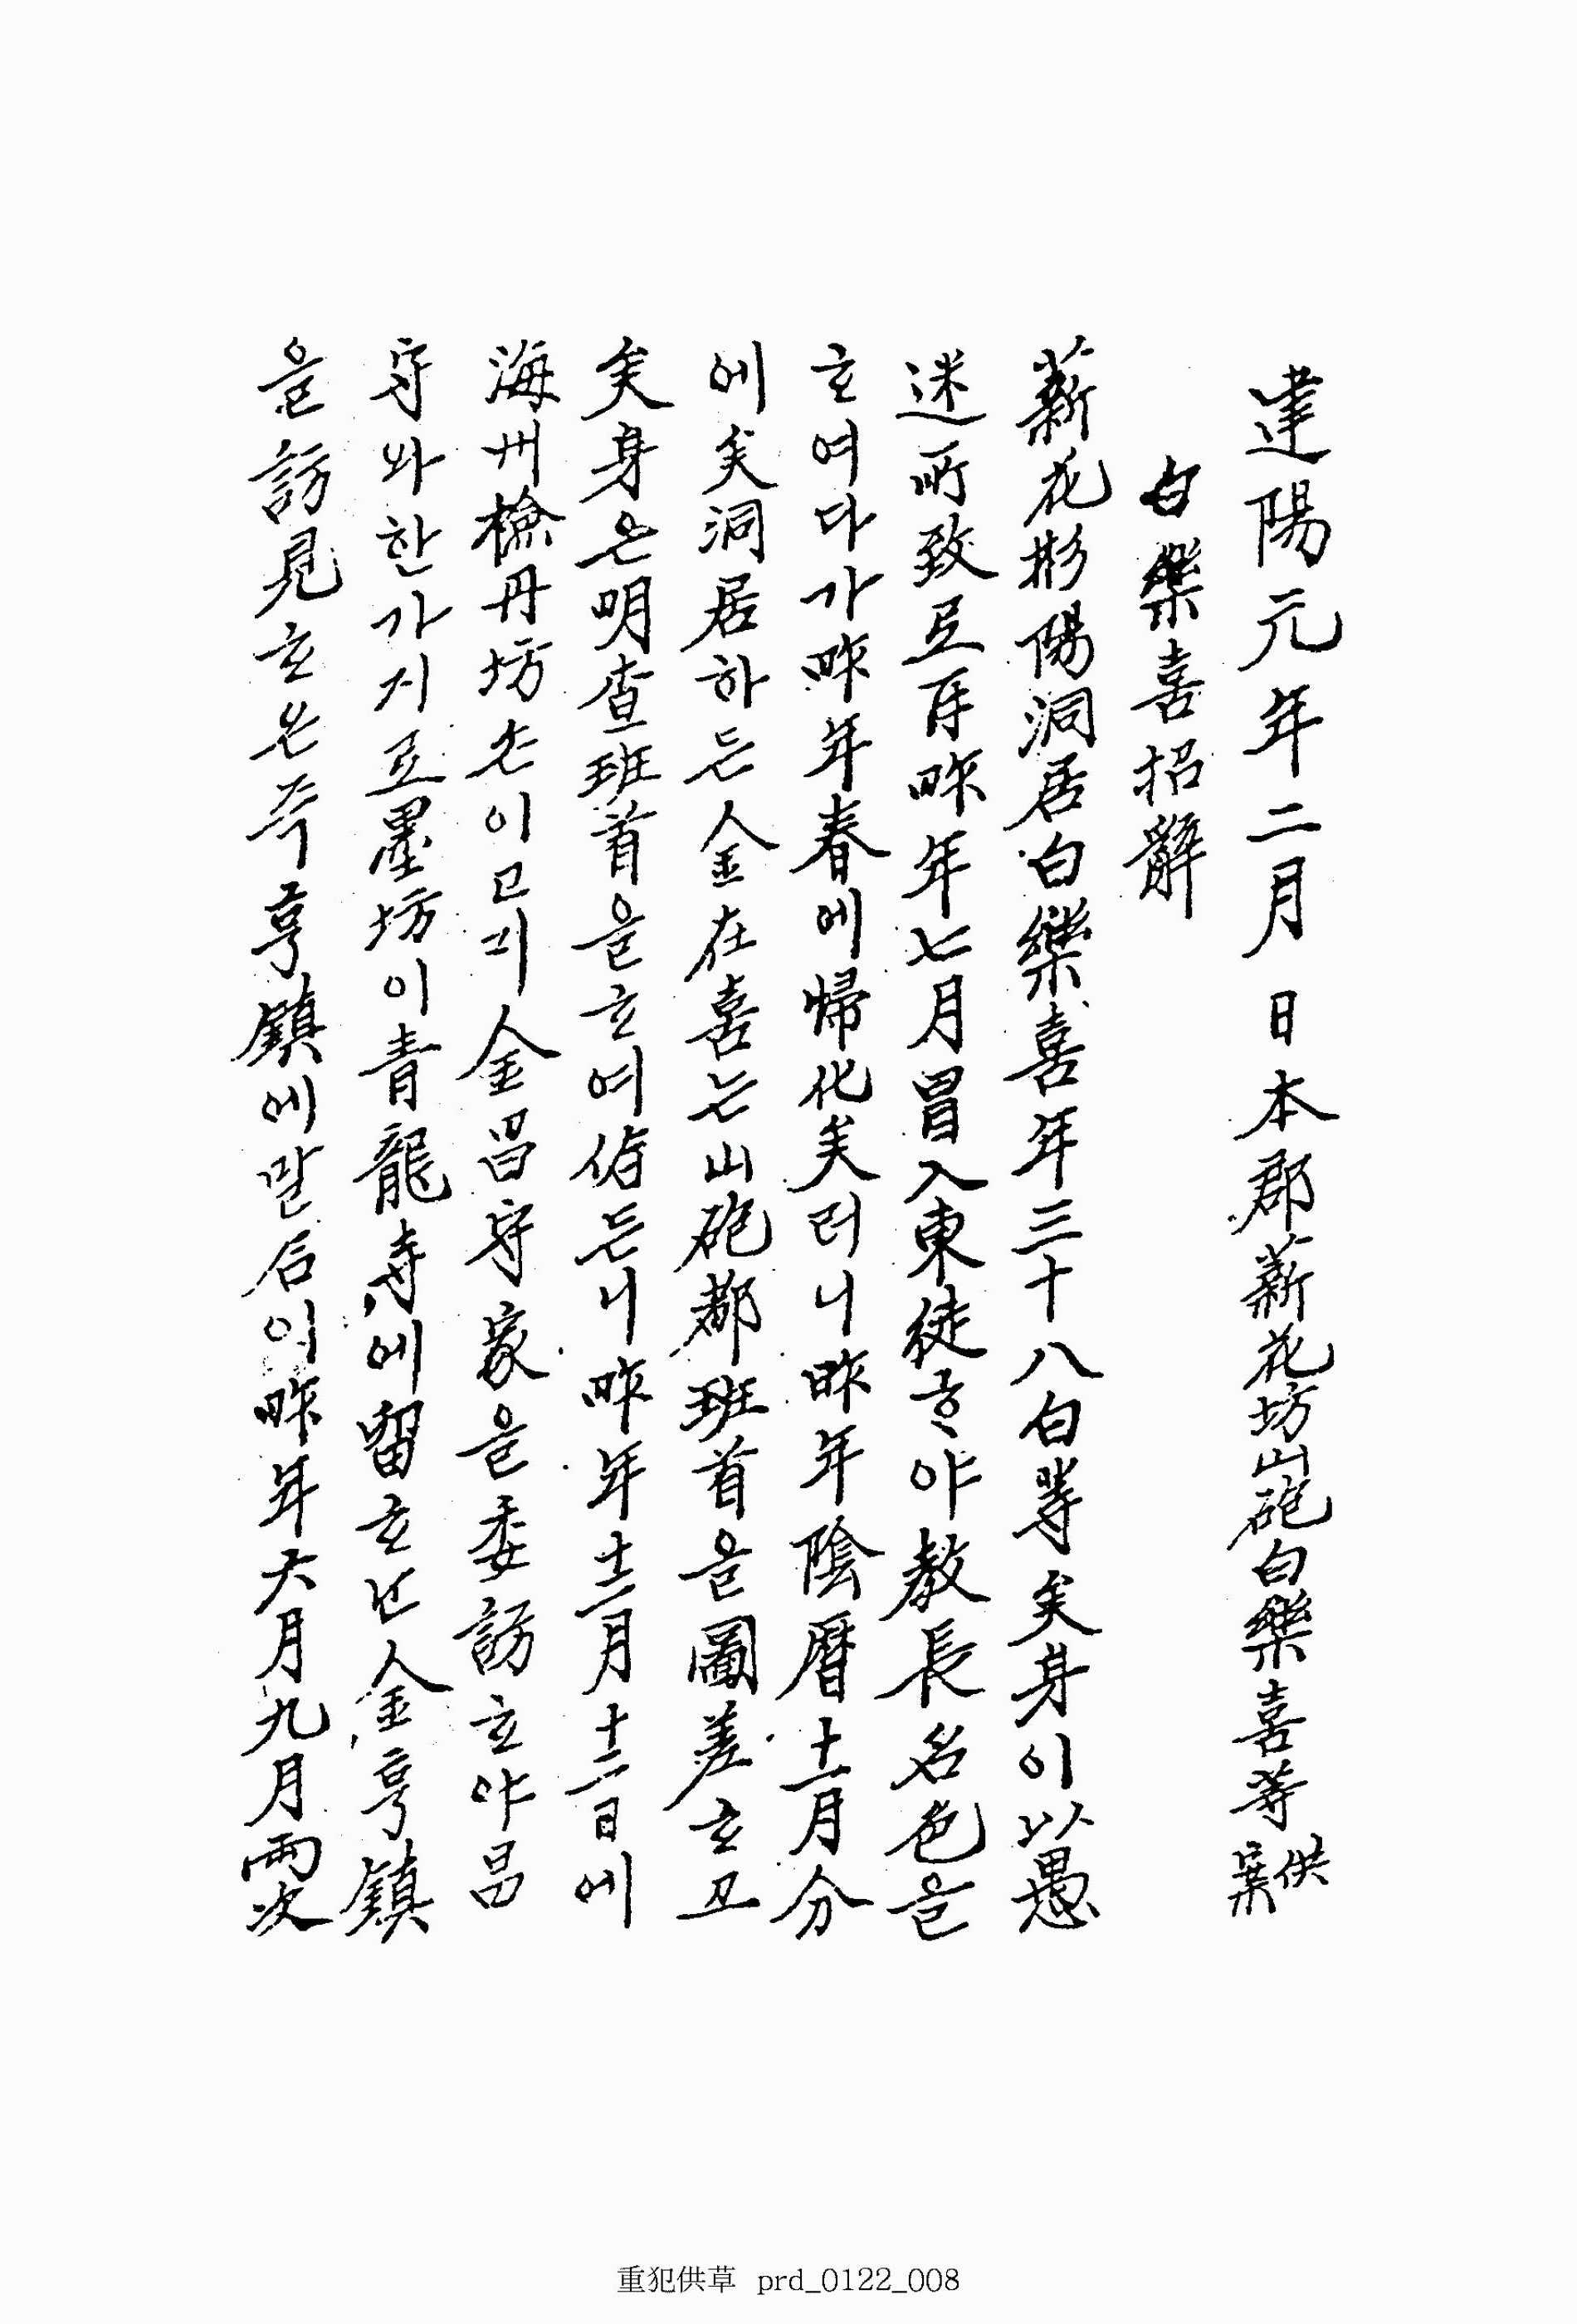 建陽元年二月 日本郡薪花坊山砲白樂喜等供案
白樂喜招辭
薪花彬陽洞居白樂喜年三十八白等矣身이以愚
迷所致로再昨年七月冒入東徒ᄒᆞ야敎長名色을
ᄒᆞ여다가昨年春에歸化矣러니昨年陰曆十一月分
에矣洞居하든金在喜는山砲都班首을圖差ᄒᆞ고
矣身은明査班首을ᄒᆞ여俻든니昨年十二月十二日에
海州檢丹坊손이고긔金昌守家을委訪ᄒᆞ야昌
守와한가지로墨坊이靑龍寺에留ᄒᆞ난金亨鎭
을訪見ᄒᆞ온즉亨鎭에말合이昨年六月九月兩次
重犯供草 prd_0122_008